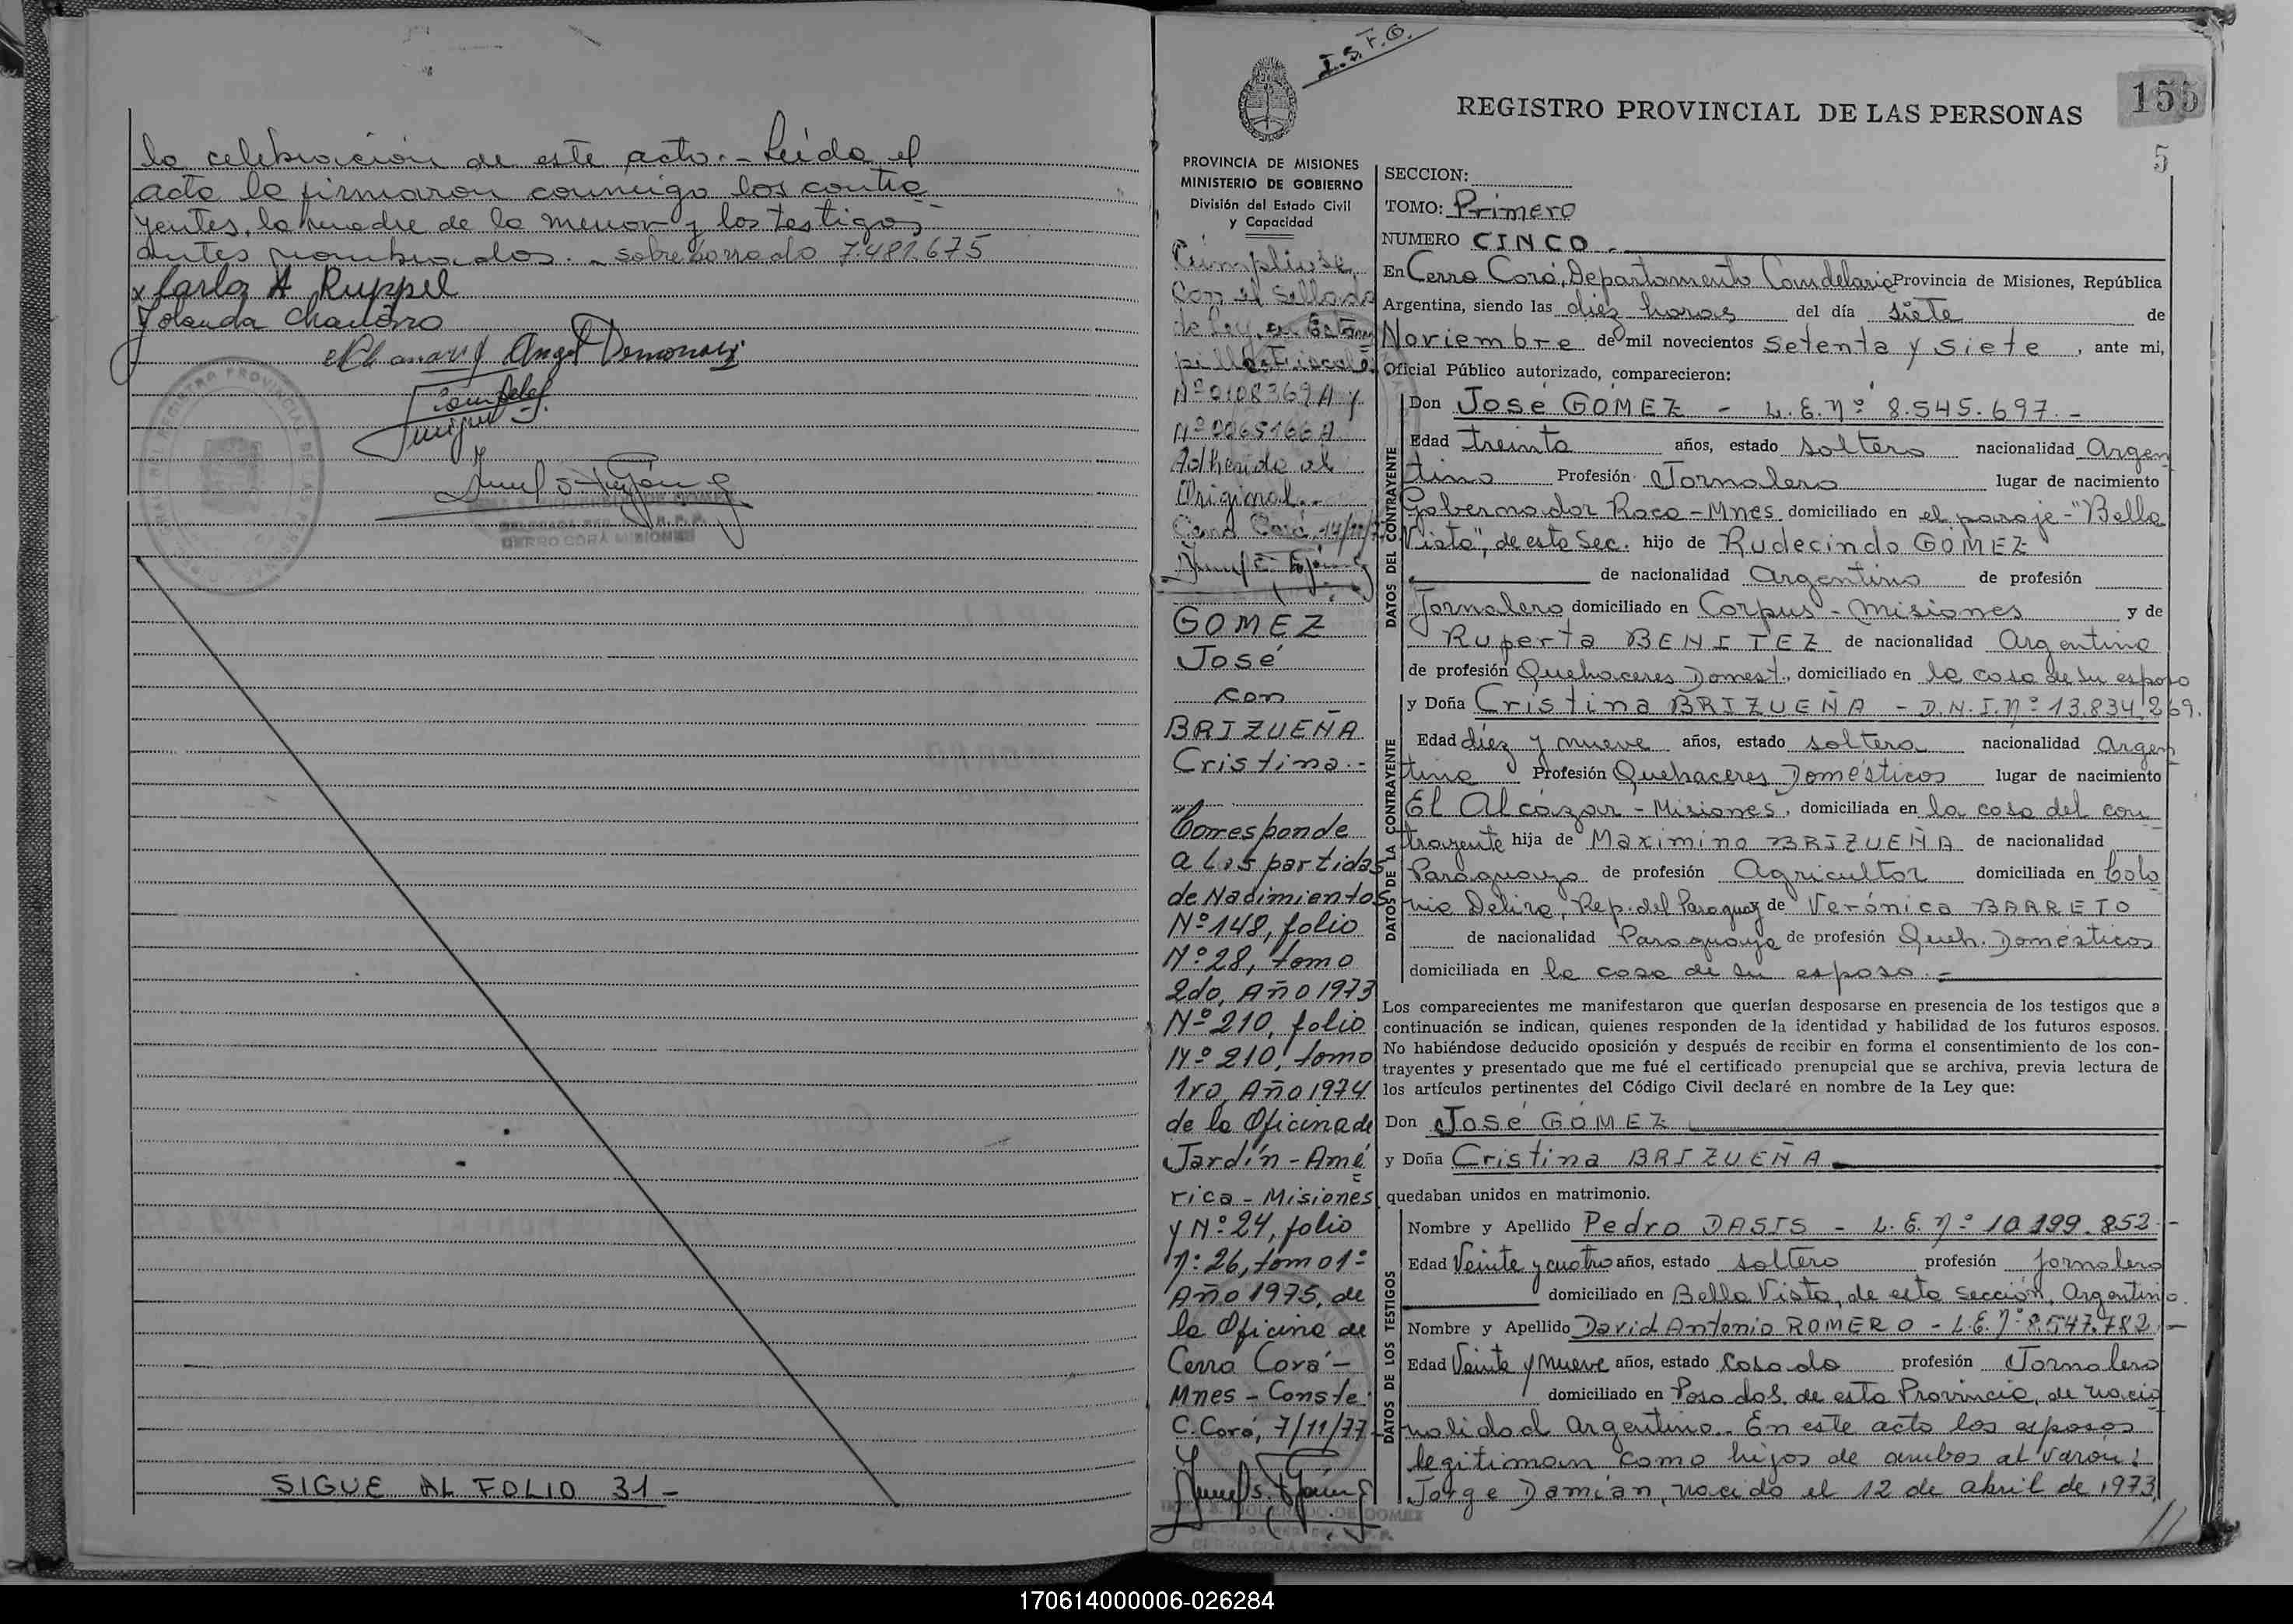 la celebración de este acto.- Leída el
acta la firmaron conmigo los contra
yentes, la madre de la menor y los testigos
antes nombrados. - sobreborrado 7.481.675
x Carlos A Ruppel
Yolanda
Angel
Miguel
SIGUE AL FOLIO 31 -
I.S.F.O.
REGISTRO PROVINCIAL DE LAS PERSONAS
155
5
PROVINCIA DE MISIONES
MINISTERIO DE GOBIERNO
División del Estado Civil
y Capacidad
Cúmpliose
con el sellado
de Ley, en Estam
pilla Fiscal
Nº 0108369 A y
Nº 0065166 A
Adherido al
Original.-
Cerro Corá, 14/11/7
GOMEZ
José
con
BRIZUEÑA
Cristina.-
Corresponde
a las partidas
de Nacimientos
Nº 148, folio
Nº 28, tomo
2do, Año 1973
Nº 210, folio
Nº 210, tomo
1ro, Año 1974
de la Oficina de
Jardín-Amé
rica - Misiones
y Nº 24, folio
Nº 26, tomo 1º
Año 1975, de
la Oficina de
Cerro Corá -
Mnes - Conste.
C. Corá, 7/11/77
SECCION:
TOMO: Primero
NUMERO CINCO.-
En Cerro Corá, Departamento Candelaria Provincia de Misiones, República
Argentina, siendo las diez horas del día siete de
Noviembre de mil novecientos setenta y siete, ante mi,
Oficial Público autorizado, comparecieron:
DATOS DEL CONTRAYENTE
Don José GOMEZ - L.E.Nº 8.545.697.-
Edad treinta años, estado soltero nacionalidad Argen
tina Profesión Jornalero lugar de nacimiento
Gobernador Roca-Mnes domiciliado en el paraje-"Bella
Vista", de esta Sec. hijo de Rudecindo GOMEZ
de nacionalidad Argentina de profesión
Jornalero domiciliado en Corpus-Misiones y de
Ruperta BENITEZ de nacionalidad Argentina
de profesión Quehaceres Domest., domiciliado en la casa de su esposo
y Doña Cristina BRIZUEÑA - D.N.I.Nº 13.834.269.
DATOS DE LA CONTRAYENTE
Edad diez y nueve años, estado soltera nacionalidad Argen
tina Profesión Quehaceres Domésticos lugar de nacimiento
El Alcázar - Misiones, domiciliada en la casa del con
trayente hija de Maximino BRIZUEÑA de nacionalidad
Paraguaya de profesión Agricultor domiciliada en Colo
nia Rep. del Paraguay de Verónica BARRETO
de nacionalidad Paraguaya de profesión Queh. Domésticos
domiciliada en la casa de su esposo.-
Los comparecientes me manifestaron que querían desposarse en presencia de los testigos que a
continuación se indican, quienes responden de la identidad y habilidad de los futuros esposos.
No habiéndose deducido oposición y después de recibir en forma el consentimiento de los con-
trayentes y presentado que me fué el certificado prenupcial que se archiva, previa lectura de
los artículos pertinentes del Código Civil declaré en nombre de la Ley que:
Don José GOMEZ
y Doña Cristina BRIZUEÑA
quedaban unidos en matrimonio.
DATOS DE LOS TESTIGOS
Nombre y Apellido Pedro DASIS - L.E.Nº 10.199.852.-
Edad Veinte y cuatro años, estado soltero profesión jornalero
domiciliado en Bella Vista, de esta Sección, Argentino.
Nombre y Apellido David Antonio ROMERO - L.E.Nº 8.547.782.-
Edad Veinte y nueve años, estado Casado profesión Jornalero
domiciliado en Posadas de esta Provincia, de nacio
nalidad Argentina. En este acto los esposos
legitiman como hijos de ambos al varon:
Jorge Damián, nacido el 12 de abril de 1973
//
170614000006-026284